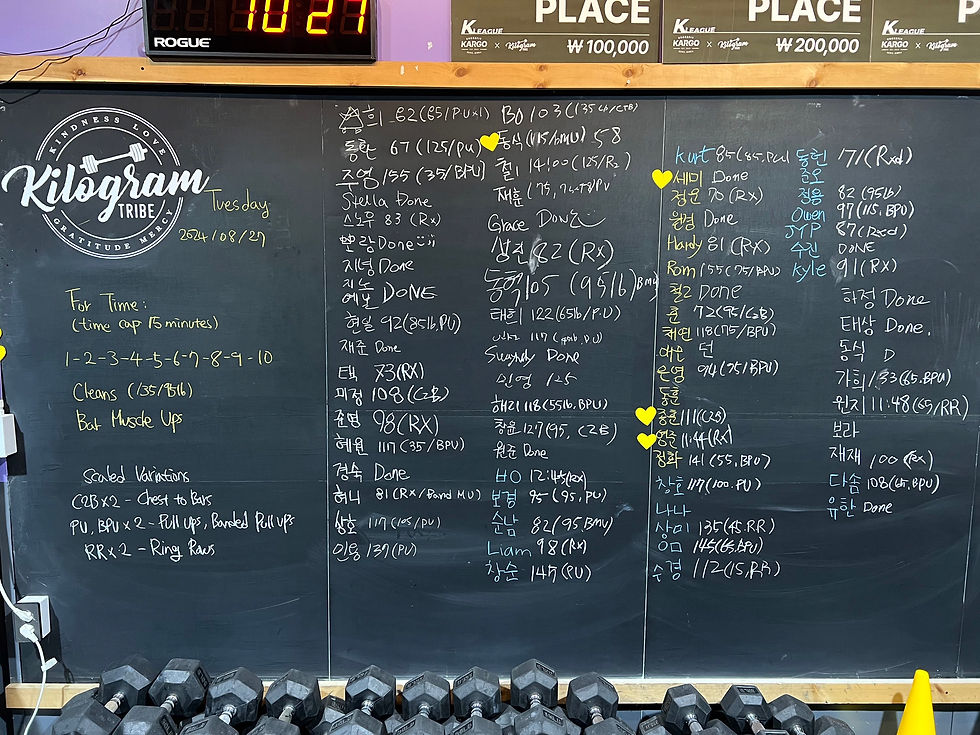 10 27
ROGUE
PLACE
K LEAGUE
KARGO × Kilogram
₩100,000
PLACE
K LEAGUE
KARGO × Kilogram
₩200,000
K LEAGUE
KARGO ×
KINDNESS LOVE
Kilogram
TRIBE
GRATITUDE MERCY
Tuesday
2024/08/27
For Time:
(time cap 15 minutes)
1-2-3-4-5-6-7-8-9-10
Cleans (135/95lb)
Bar Muscle Ups
Scaled Variations
C2B×2 - Chest to Bars
PU, BPU×2 - Pull ups, Banded Pull ups
RR×2 - Ring Rows
62 (65/PU×1)
동환 67 (125/PU)
주영 155 (35/BPU)
Stella Done
스노우 83 (Rx)
람 Done
지녕 Done
DONE
현일 92 (85lb, PU)
재준 Done
택 73 (RX)
미정 108 (C2B)
준명 98 (RX)
혜원 117 (35/BPU)
경숙 Done
허니 81 (RX/Band MU)
상호 117 (105/PU)
민용 137 (PU)
BO 103 (135lb/CTB)
동식 (115/BMU) 58
철 14:00 (125/Rx)
재훈
Grace Done
상진 82 (RX)
동혁 105 (95lb) BMU
태희 122 (65lb/PU)
117
Swendy Done
민영 125
해리 118 (55lb, BPU)
창윤 127 (95, C2B)
원준 Done
HO 12:45 (RX)
보경 95 (95, PU)
순남 82 (95 BMU)
Liam 98 (Rx)
창순 145 (PU)
Kurt 85 (85, PU)
세미 Done
정운 70 (RX)
원경 Done
Hardy 81 (RX)
Rom 155 (75/BPU)
철고 Done
훈 72 (95/C2B)
채연 118 (75/BPU)
던
은영 94 (75/BPU)
동훈
종훈 111 (C2B)
영준 11:44 (RX)
정화 141 (55, BPU)
창호 117 (100, PU)
나나
상미 135 (45, RR)
145 (65, BPU)
수경 112 (15, RR)
동헌 171 (Rxd)
준오
정용 82 (95lb)
Owen 97 (115, BPU)
JYP 87 (Rxd)
수진 DONE
Kyle 91 (RX)
하정 Done
태상 Done.
동식 D
가희 133 (65, BPU)
원지 11:48 (65/RR)
보라
재재 100 (RX)
다솜 108 (65, BPU)
유찬 Done